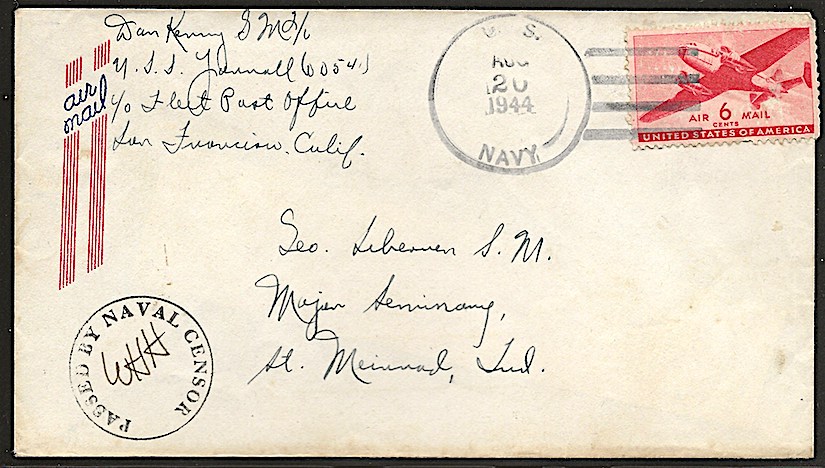 Dan Kenny S M 3/c
U.S.S. Yarnall (DD541)
c/o Fleet Post Office
San Francisco, Calif.
air
mail
U. S.
AUG
20
1944
NAVY
AIR 6 MAIL
CENTS
UNITED STATES OF AMERICA
Geo. S. M.
Major Seminary,
St. Meinrad, Ind.
PASSED BY NAVAL CENSOR
WHH